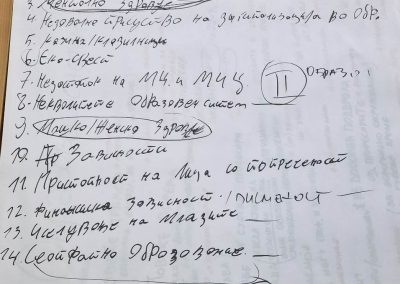 3. Ментално здравје
4. Недоволно присуство на          во Обр.
5. Казна/
6. Еко-свест
7. Недостаток на МЦ и МИЦ
II ОБРАЗ
8. Неквалитетен Образовен систем
9. Машко/Женско Здравје
10. Зависности
11. Пристапност на Лица со попреченост
12. Финансиска зависност/ПИСМЕНОСТ
13. Иселување на Младите
14. Сеопфатно Образование